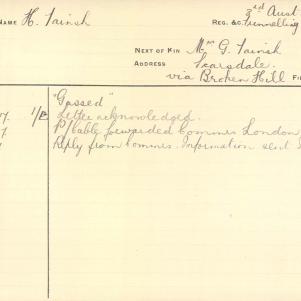 3rd Aust
NAME H. Tairsh REG. &C. Tunnelling
NEXT OF KIN Mrs G. Tairsh
ADDRESS Scarsdale.
via Broken Hill
"Gassed"
Letter acknowledged.
P/cable forwarded Commrs London
Reply from Commrs. Information sent